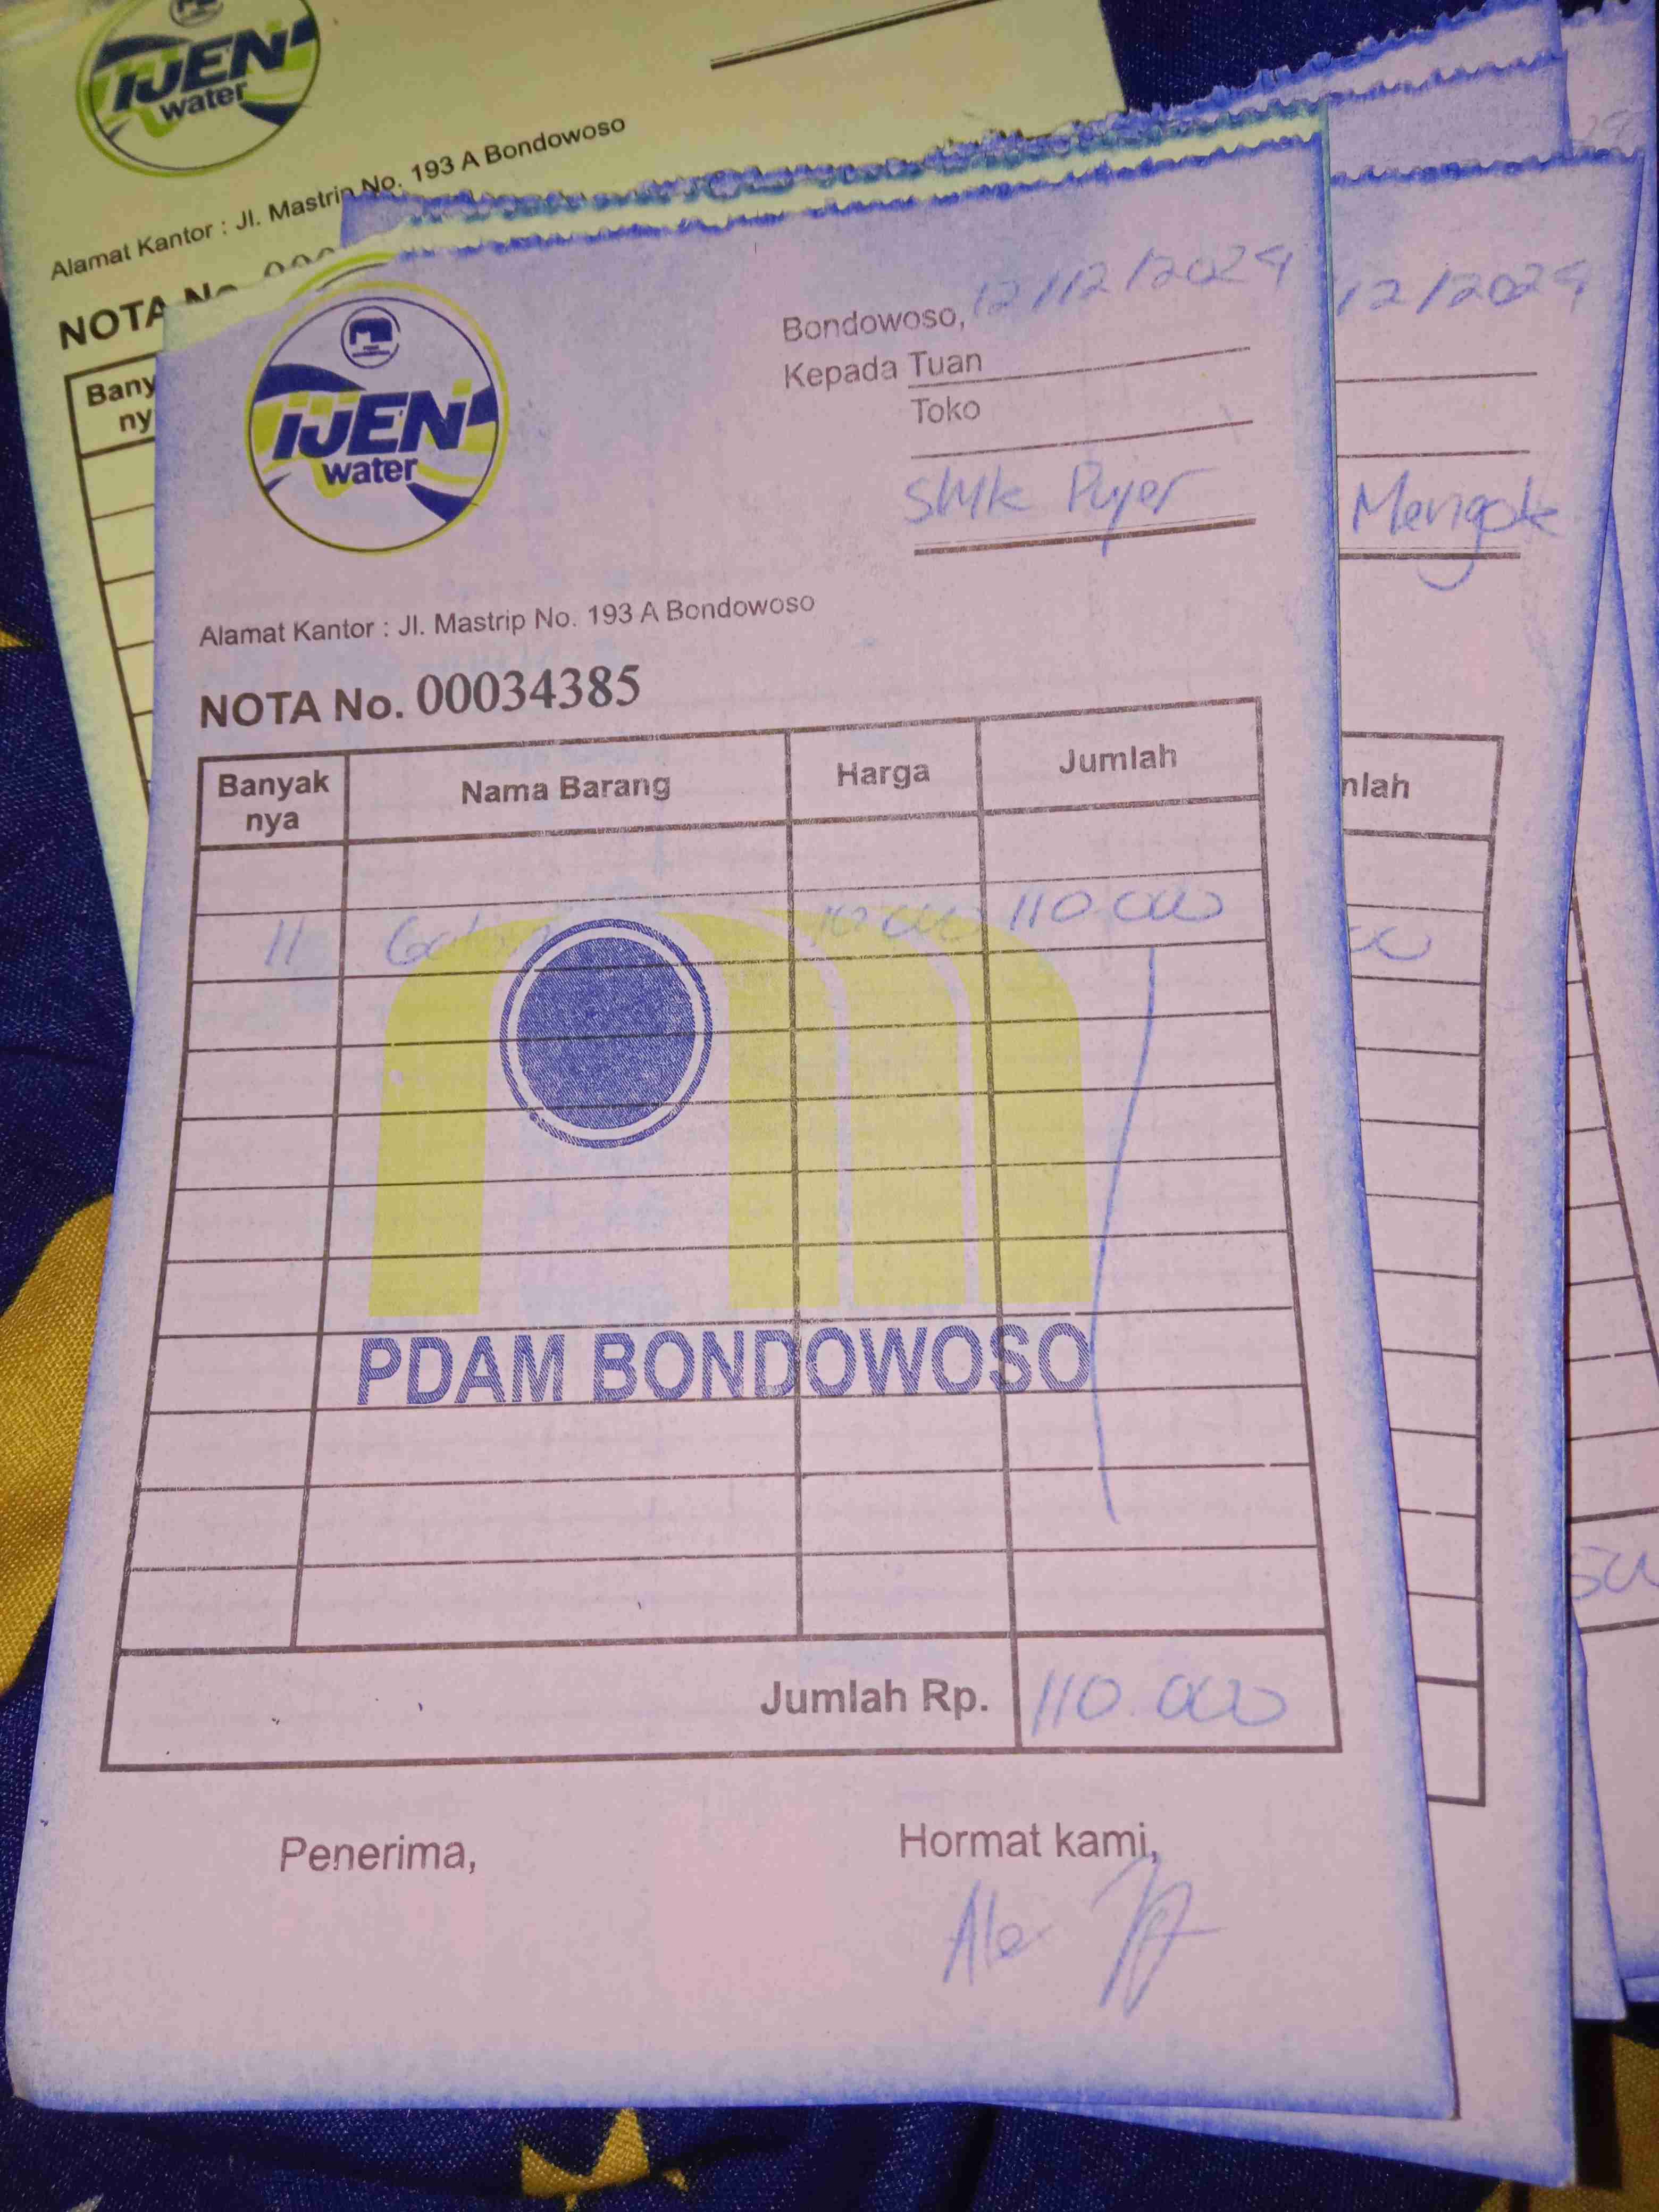 IJEN
water
Alamat Kantor : Jl. Mastrip No. 193 A Bondowoso
NOTA No.
Bany
ny
IJEN
water
Bondowoso, 12/12/2024
Kepada Tuan
Toko
SMK Pujer
Alamat Kantor : Jl. Mastrip No. 193 A Bondowoso
NOTA No. 00034385
Banyak nya Nama Barang Harga Jumlah
11 10.000 110.000
PDAM BONDOWOSO
Jumlah Rp. 110.000
Penerima, Hormat kami,
12/2024
nlah